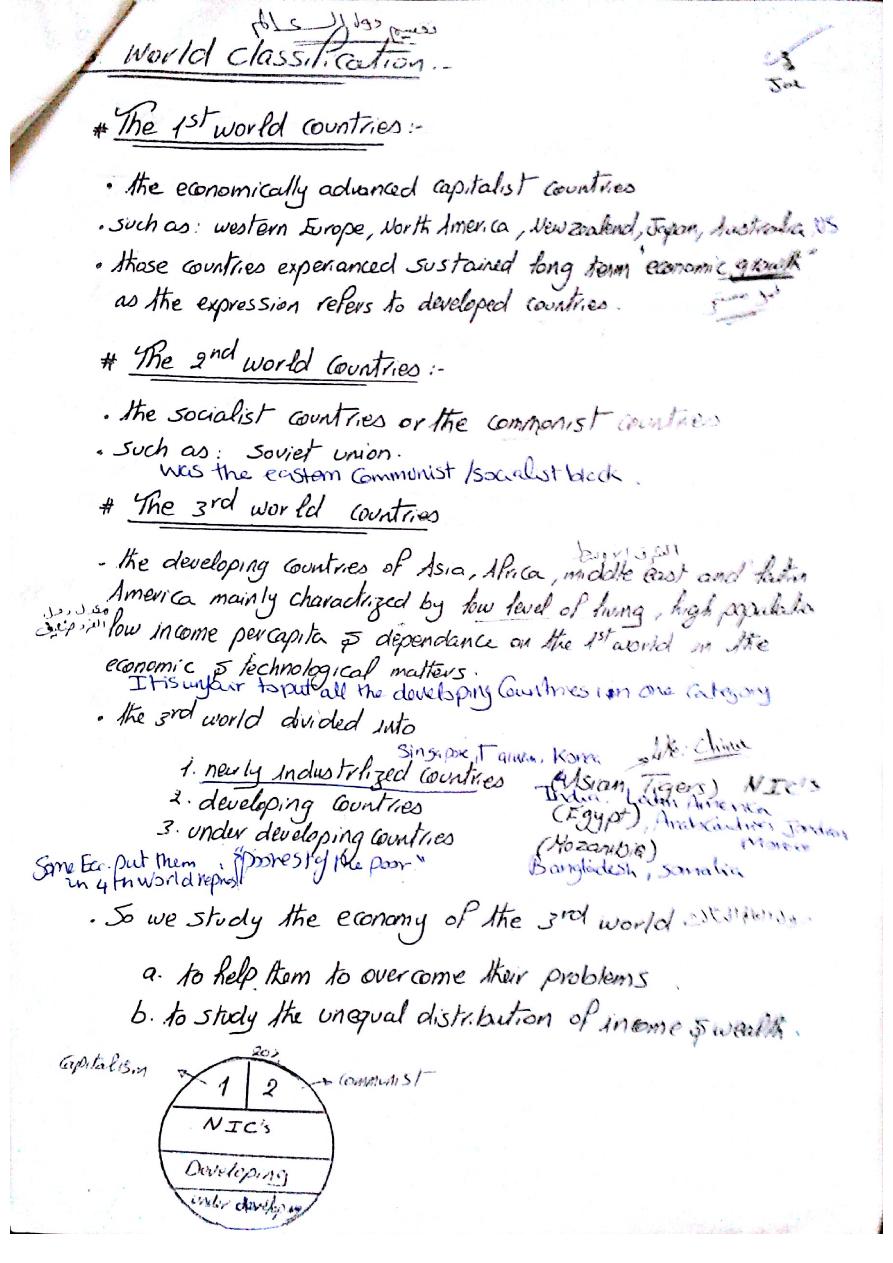 تقسيم دول العالم
World classification :-
# The 1st world countries :-
• the economically advanced capitalist countries
• such as: western Europe, North America, New zealend, Japan, Australia, US
• those countries experianced sustained long term "economic growth"
as the expression refers to developed countries.
# The 2nd world countries :-
• the socialist countries or the commonist countries
• such as: soviet union.
was the eastern Communist /socialist block.
# The 3rd world countries
- the developing countries of Asia, Africa, middle east and latin
America mainly charactrized by low level of living, high population
low income percapita & dependance on the 1st world in the
economic & technological matters.
It is unfair to put all the developing Countries in one category
• the 3rd world divided into
Singapore, Taiwan, Korea like China
1. newly industrlized countries (Asian Tigers) NIC's
India Latin America
2. developing countries (Egypt), Jordan
3. under developing countries (Mozambia)
Some Ec. put them in 4th world "poorest of the poor" Bangladesh, Somalia
• So we study the economy of the 3rd world
a. to help them to overcome their problems
b. to study the unequal distribution of income & wealth.
20%
Capitalism 1 2 communist
NIC's
Developing
under develop